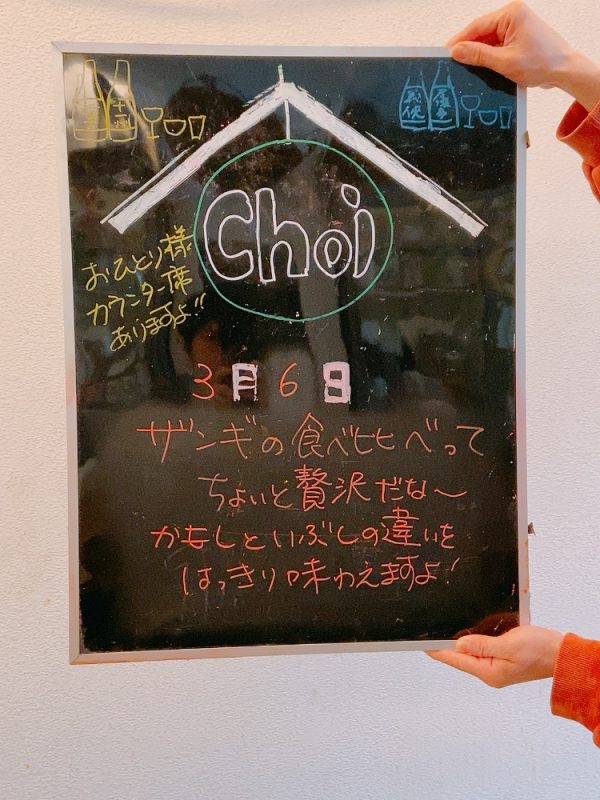 Choi
おひとり様
カウンター席
ありますよ!!
3月6日
ザンギの食べ比べって
ちょいと贅沢だな〜
かもしといぶしの違いを
はっきり味わえますよ!